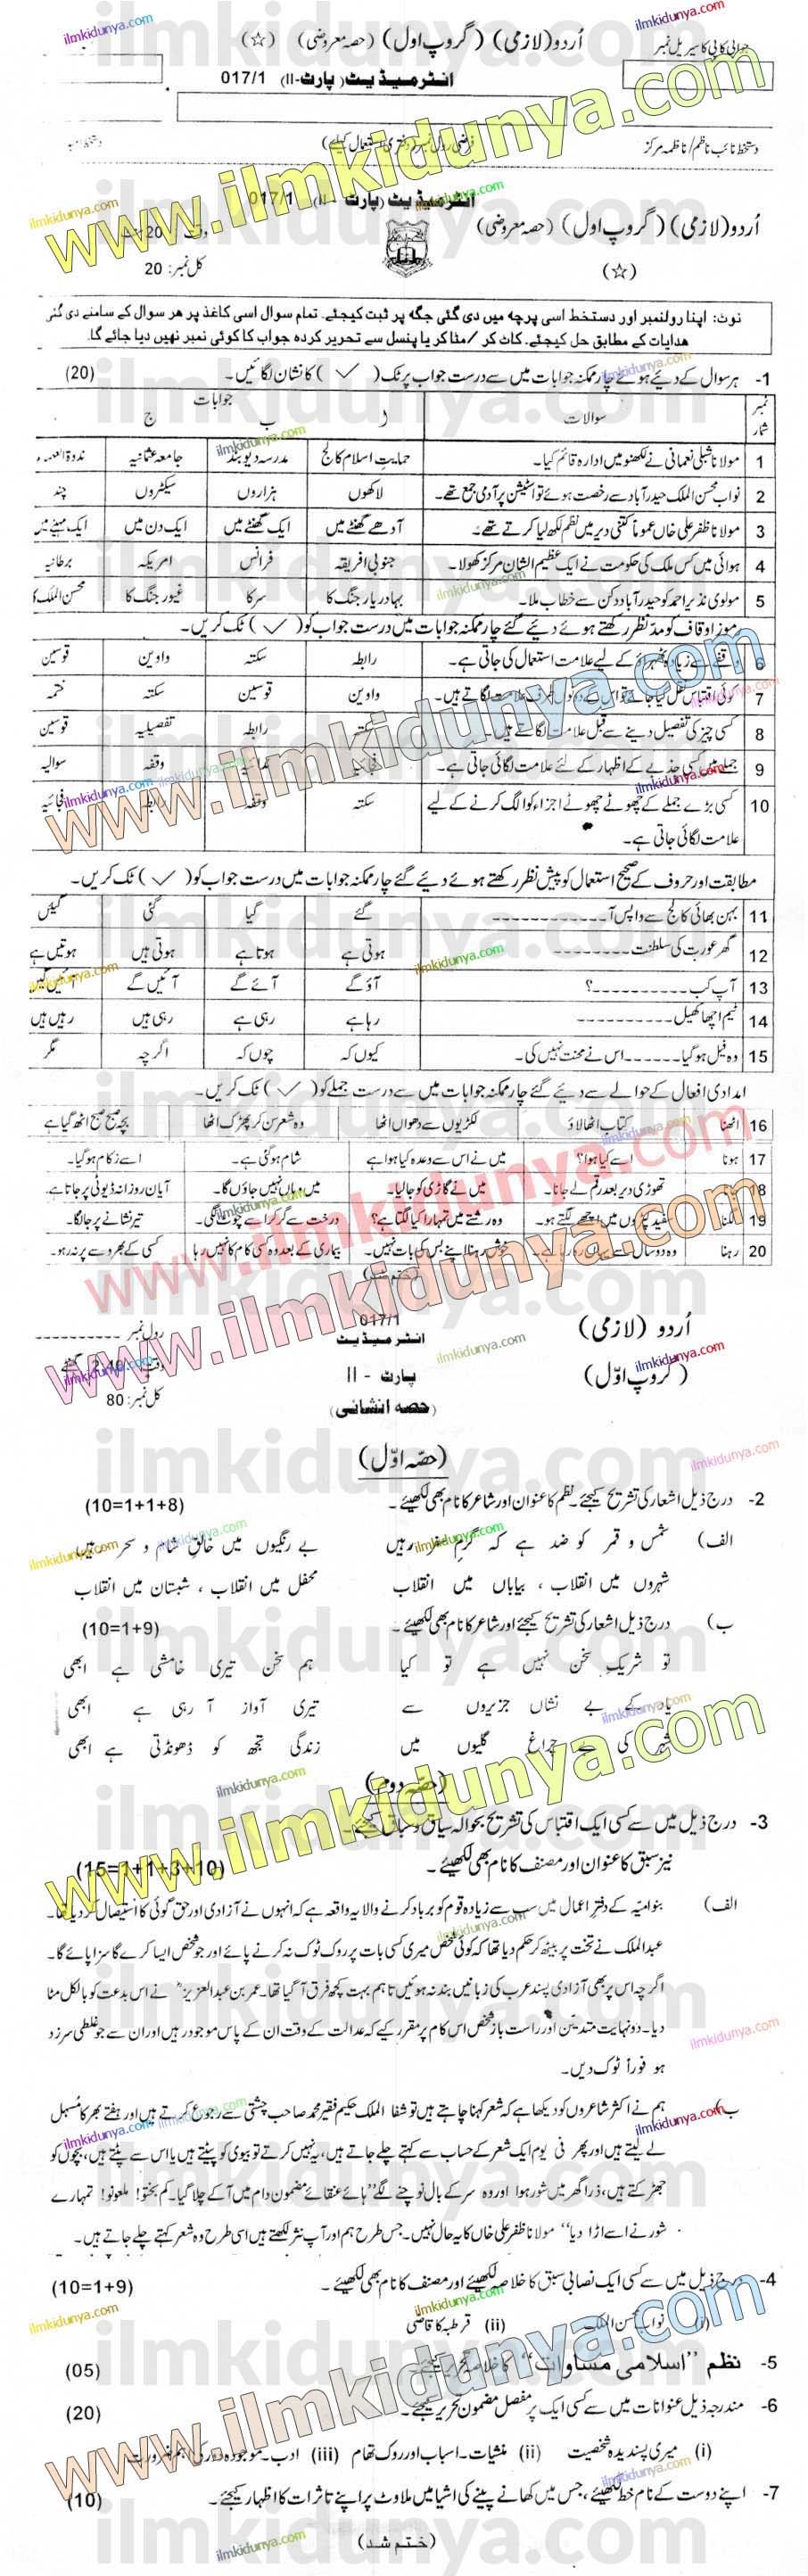 اُردو (لازمی) (گروپ اول) (حصہ معروضی) (☆)
جوابی کاپی کا سیریل نمبر
انٹرمیڈیٹ (پارٹ-II) 017/1
دستخط نائب ناظم / ناظمہ مرکز
فرضی رول نمبر (دفتری استعمال کیلئے)
انٹرمیڈیٹ (پارٹ - II) 017/1
اُردو (لازمی) (گروپ اول) (حصہ معروضی)
(☆)
کل نمبر: 20
نوٹ: اپنا رولنمبر اور دستخط اسی پرچہ میں دی گئی جگہ پر ثبت کیجئے. تمام سوال اسی کاغذ پر ھر سوال کے سامنے دی گئی
ھدایات کے مطابق حل کیجئے. کاٹ کر / مٹا کر یا پنسل سے تحریر کردہ جواب کا کوئی نمبر نھیں دیا جائے گا.
1- ہر سوال کے دیئے ہوئے چار ممکنہ جوابات میں سے درست جواب پر ٹک (✓) کا نشان لگائیں۔ (20)
نمبر شمار سوالات جوابات
ا ب ج
1 مولانا شبلی نعمانی نے لکھنو میں ادارہ قائم کیا۔ حمایت اسلام کالج مدرسہ دیوبند جامعہ عثمانیہ ندوۃ العلماء
2 نواب محسن الملک حیدر آباد سے رخصت ہوئے تو اسٹیشن پر آدمی جمع تھے۔ لاکھوں ہزاروں سیکڑوں چند
3 مولانا ظفر علی خاں عموماً کتنی دیر میں نظم لکھ لیا کرتے تھے۔ آدھے گھنٹے میں ایک گھنٹے میں ایک دن میں ایک مہینے میں
4 ہوائی میں کس ملک کی حکومت نے ایک عظیم الشان مرکز کھولا۔ جنوبی افریقہ فرانس امریکہ برطانیہ
5 مولوی نذیر احمد کو حیدر آباد دکن سے خطاب ملا۔ بہادر یار جنگ کا سر کا غیور جنگ کا محسن الملک کا
رموز اوقاف کو مدّ نظر رکھتے ہوئے دیئے گئے چار ممکنہ جوابات میں درست جواب کو (✓) ٹک کریں۔
6 وقفے سے زیادہ ٹھہراؤ کے لیے علامت استعمال کی جاتی ہے۔ رابطہ سکتہ واوین قوسین
7 کوئی اقتباس نقل کیا جائے تو اس کے دونوں طرف علامت لگاتے ہیں۔ واوین قوسین سکتہ ختمہ
8 کسی چیز کی تفصیل دینے سے قبل علامت لگاتے ہیں۔ رابطہ تفصیلیہ قوسین
9 جملے میں کسی جذبے کے اظہار کے لئے علامت لگائی جاتی ہے۔ وقفہ سوالیہ
10 کسی بڑے جملے کے چھوٹے چھوٹے اجزاء کو الگ کرنے کے لیے سکتہ وقفہ رابطہ فجائیہ
علامت لگائی جاتی ہے۔
مطابقت اور حروف کے صحیح استعمال کو پیش نظر رکھتے ہوئے دیئے گئے چار ممکنہ جوابات میں درست جواب کو (✓) ٹک کریں۔
11 بہن بھائی کالج سے واپس آ ------------ گئے گیا گئی گئیں
12 گھر عورت کی سلطنت -------- ہوتی ہے ہوتا ہے ہوتی ہیں ہوتیں ہے
13 آپ کب ----------؟ آؤ گے آئے گے آئیں گے
14 ٹیم اچھا کھیل ---------- رہا ہے رہی ہے رہی ہیں رہیں ہیں
15 وہ فیل ہو گیا ------ اس نے محنت نہیں کی۔ کیوں کہ چوں کہ اگرچہ مگر
امدادی افعال کے حوالے سے دیئے گئے چار ممکنہ جوابات میں سے درست جملے کو (✓) ٹک کریں۔
16 اٹھنا کتاب اٹھا لاؤ لکڑیوں سے دھواں اٹھا وہ شعر سن کر پھڑک اٹھا بچہ صبح صبح اٹھ گیا ہے
17 ہونا اسے کیا ہوا؟ میں نے اس سے وعدہ کیا ہوا ہے شام ہو گئی ہے۔ اسے زکام ہو گیا۔
18 تھوڑی دیر بعد رقم لے جانا۔ میں نے گاڑی کو جا لیا۔ میں وہاں نہیں جاؤں گا۔ آیان روزانہ ڈیوٹی پر جاتا ہے۔
19 لگنا سفید کپڑوں میں اچھے لگتے ہو۔ وہ رشتے میں تمہارا کیا لگتا ہے؟ درخت سے گر کر اسے چوٹ لگی۔ تیر نشانے پر جا لگا۔
20 رہنا وہ دو سال سے یہاں رہ رہا ہے۔ خوش رہنا اپنے بس کی بات نہیں۔ بیماری کے بعد وہ کسی کام کا نہیں رہا کسی کے بھروسے پر نہ رہو۔
(ختم شد)
اُردو (لازمی)
017/1
انٹرمیڈیٹ
رول نمبر ----------
(گروپ اوّل)
پارٹ - II
وقت: 2.40 گھنٹے
(حصہ انشائی)
کل نمبر: 80
(حصّہ اوّل)
2- درج ذیل اشعار کی تشریح کیجئے۔ نظم کا عنوان اور شاعر کا نام بھی لکھیئے۔ (10=1+1+8)
الف) شمس و قمر کو ضد ہے کہ گرمِ سفر رہیں بے رنگیوں میں خالقِ شام و سحر رہیں
شہروں میں انقلاب ، بیاباں میں انقلاب محفل میں انقلاب ، شبستان میں انقلاب
ب) درج ذیل اشعار کی تشریح کیجئے اور شاعر کا نام بھی لکھیئے۔ (10=1+9)
تو شریکِ سخن نہیں ہے تو کیا ہم سخن تیری خامشی ہے ابھی
یاد کے بے نشاں جزیروں سے تیری آواز آ رہی ہے ابھی
شہر کی بے چراغ گلیوں میں زندگی تجھ کو ڈھونڈتی ہے ابھی
(حصّہ دوم)
3- درج ذیل میں سے کسی ایک اقتباس کی تشریح بحوالہ سیاق و سباق کیجئے۔
نیز سبق کا عنوان اور مصنف کا نام بھی لکھیئے۔ (15=1+1+3+10)
الف) بنو امیّہ کے دفترِ اعمال میں سب سے زیادہ قوم کو برباد کرنے والا یہ واقعہ ہے کہ انہوں نے آزادی اور حق گوئی کا استیصال کر دیا تھا۔
عبدالملک نے تخت پر بیٹھ کر حکم دیا تھا کہ کوئی شخص میری کسی بات پر روک ٹوک نہ کرنے پائے اور جو شخص ایسا کرے گا سزا پائے گا۔
اگرچہ اس پر بھی آزادی پسند عرب کی زبانیں بند نہ ہوئیں تاہم بہت کچھ فرق آ گیا تھا۔ عمر بن عبدالعزیزؒ نے اس بدعت کو بالکل مٹا
دیا۔ دو نہایت متدیّن اور راست باز شخص اس کام پر مقرر کیے کہ عدالت کے وقت ان کے پاس موجود رہیں اور ان سے جو غلطی سرزد
ہو فوراً ٹوک دیں۔
ب) ہم نے اکثر شاعروں کو دیکھا ہے کہ شعر کہنا چاہتے ہیں تو شفا الملک حکیم فقیر محمد صاحب چشتی سے رجوع کرتے ہیں اور ہفتے بھر کا مُسہل
لے لیتے ہیں اور پھر فی یوم ایک شعر کے حساب سے کہتے چلے جاتے ہیں، یہ نہیں کرتے تو بیوی کو پیٹتے ہیں یا اس سے پٹتے ہیں، بچوں کو
جھڑکتے ہیں، ذرا گھر میں شور ہوا اور وہ سر کے بال نوچنے لگے ”ہائے عنقائے مضمون دام میں آ کے چلا گیا۔ کم بختو! ملعونو! تمہارے
شور نے اسے اڑا دیا“ مولانا ظفر علی خاں کا یہ حال نہیں۔ جس طرح ہم اور آپ نثر لکھتے ہیں اسی طرح وہ شعر کہتے چلے جاتے ہیں۔
4- درج ذیل میں سے کسی ایک نصابی سبق کا خلاصہ لکھیئے اور مصنف کا نام بھی لکھیئے۔ (10=1+9)
(i) نواب محسن الملک (ii) قرطبہ کا قاضی
5- نظم ”اسلامی مساوات“ کا خلاصہ تحریر کیجئے۔ (05)
6- مندرجہ ذیل عنوانات میں سے کسی ایک پر مفصل مضمون تحریر کیجئے۔ (20)
(i) میری پسندیدہ شخصیت (ii) منشیات۔ اسباب اور روک تھام (iii) ادب۔ موجودہ دور کی اہم ضرورت
7- اپنے دوست کے نام خط لکھیئے، جس میں کھانے پینے کی اشیا میں ملاوٹ پر اپنے تاثرات کا اظہار کیجئے۔ (10)
(ختم شد)
www.ilmkidunya.com
ilmkidunya.com